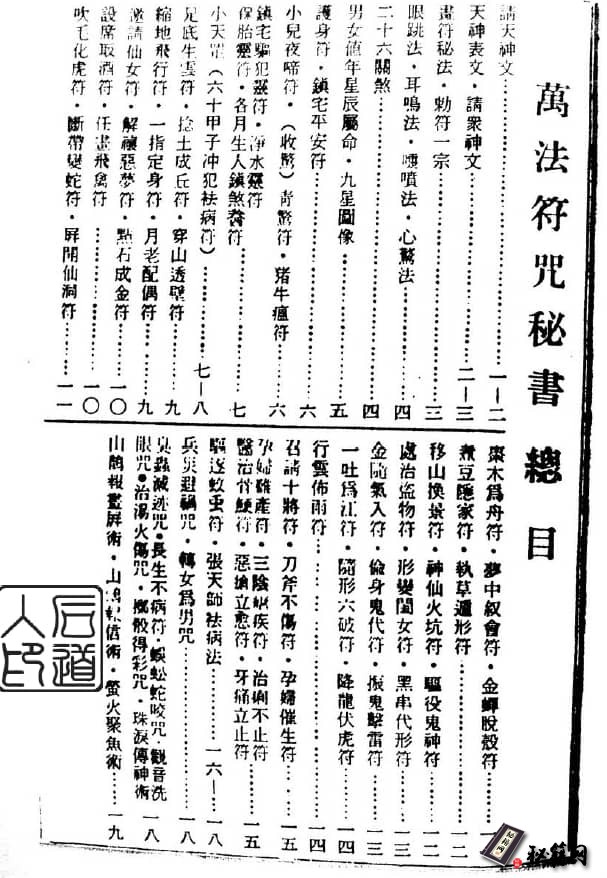 萬法符咒秘書 總目
請天神文……一—二
天神表文·請衆神文……二—三
畫符秘法·勅符一宗……三
眼跳法·耳鳴法·嚏噴法·心驚法……四
二十六關煞……四
男女値年星辰屬命·九星圖像……五
護身符·鎮宅平安符……六
小兒夜啼符·(收驚)靑驚符·猪牛瘟符……六
鎮宅驅犯靈符·淨水靈符
保胎靈符·各月生人鎮煞符……七
小天罡(六十甲子冲犯袪病符)……七—八
足底生雲符·捻土成丘符·穿山透壁符……九
縮地飛行符·一指定身符·月老配偶符……九
邀請仙女符·解禳惡夢符·點石成金符……一〇
設席取酒符·任畫飛禽符……一〇
吹毛化虎符·斷帶變蛇符·屏開仙洞符……一一
棗木爲舟符·夢中叙會符·金蟬脫殼符
煮豆隱家符·執草遁形符……一二
移山換景符·神仙火坑符·驅役鬼神符……一二
處治盜物符·形變閨女符·黑串代形符……一三
金隨氣入符·偷身鬼代符·振鬼擊雷符……一三
一吐爲江符·隨形六破符·降龍伏虎符……一四
行雲佈雨符……一四
召請十將符·刀斧不傷符·孕婦催生符……一五
孕婦難產符·三陰瘧疾符·治痢不止符
醫治骨鯁符·惡瘡立愈符·牙痛立止符……一五
驅逐蚊虫符·張天師袪病法……一六—一八
兵災避禍咒·轉女爲男咒……一八
臭蟲滅迹咒·長生不病符·蜈蚣蛇咬咒·觀音洗
眼咒·治湯火傷咒·擲骰得彩咒·珠淚傳神術……一八
山鵲報晝屏術·山信術·螢火聚魚術……一九
后道人印
秘籍网